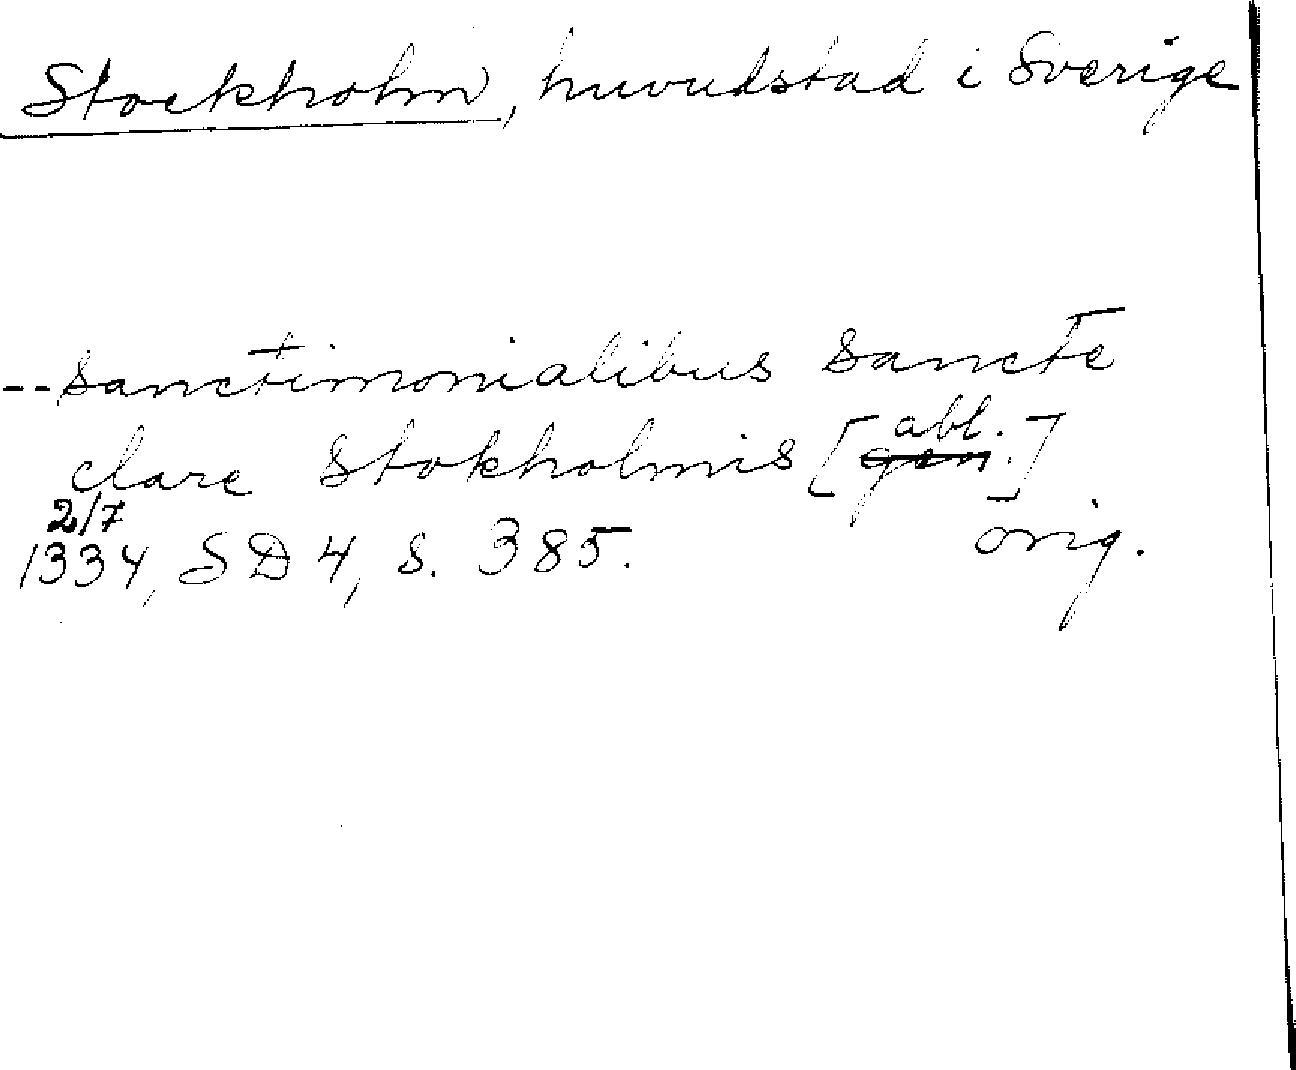 Stockholm, huvudstad i Sverige
-- sanctimonialibus sancte
abl.
clare Stokholmis [gen.]
2/7
1334, SD 4, s. 385. orig.